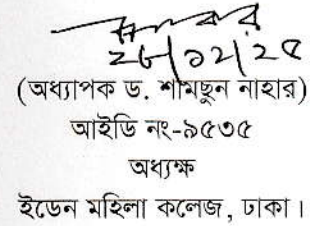 ২৮/১২/২৫
(অধ্যাপক ড. শামছুন নাহার)
আইডি নং-৯৫৩৫
অধ্যক্ষ
ইডেন মহিলা কলেজ, ঢাকা।